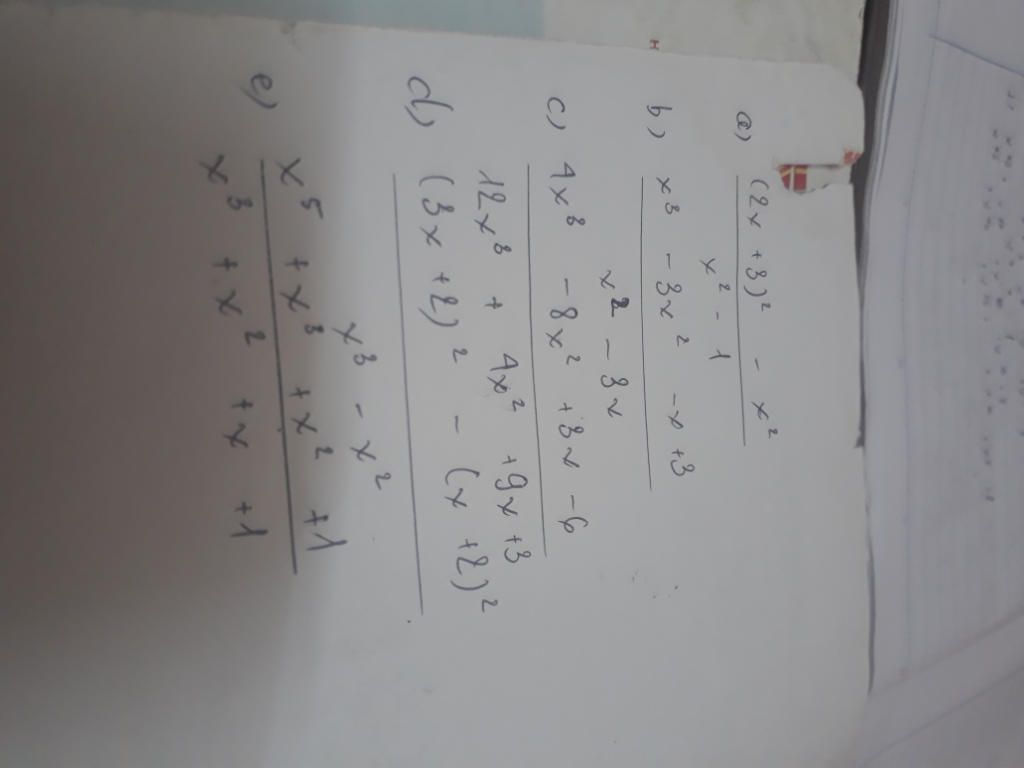 a) (2x + 3)² - x²
x² - 1
b) x³ - 3x² - x + 3
x² - 3x
c) 4x³ - 8x² + 3x - 6
12x³ + 4x² + 9x + 3
d) (3x + 2)² - (x + 2)²
x³ - x²
e) x⁵ + x³ + x² + 1
x³ + x² + x + 1